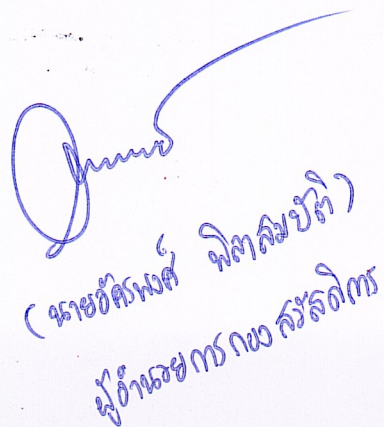 (นายอัครพงศ์ พิลาสมบัติ)
ผู้อำนวยการกองสวัสดิการ